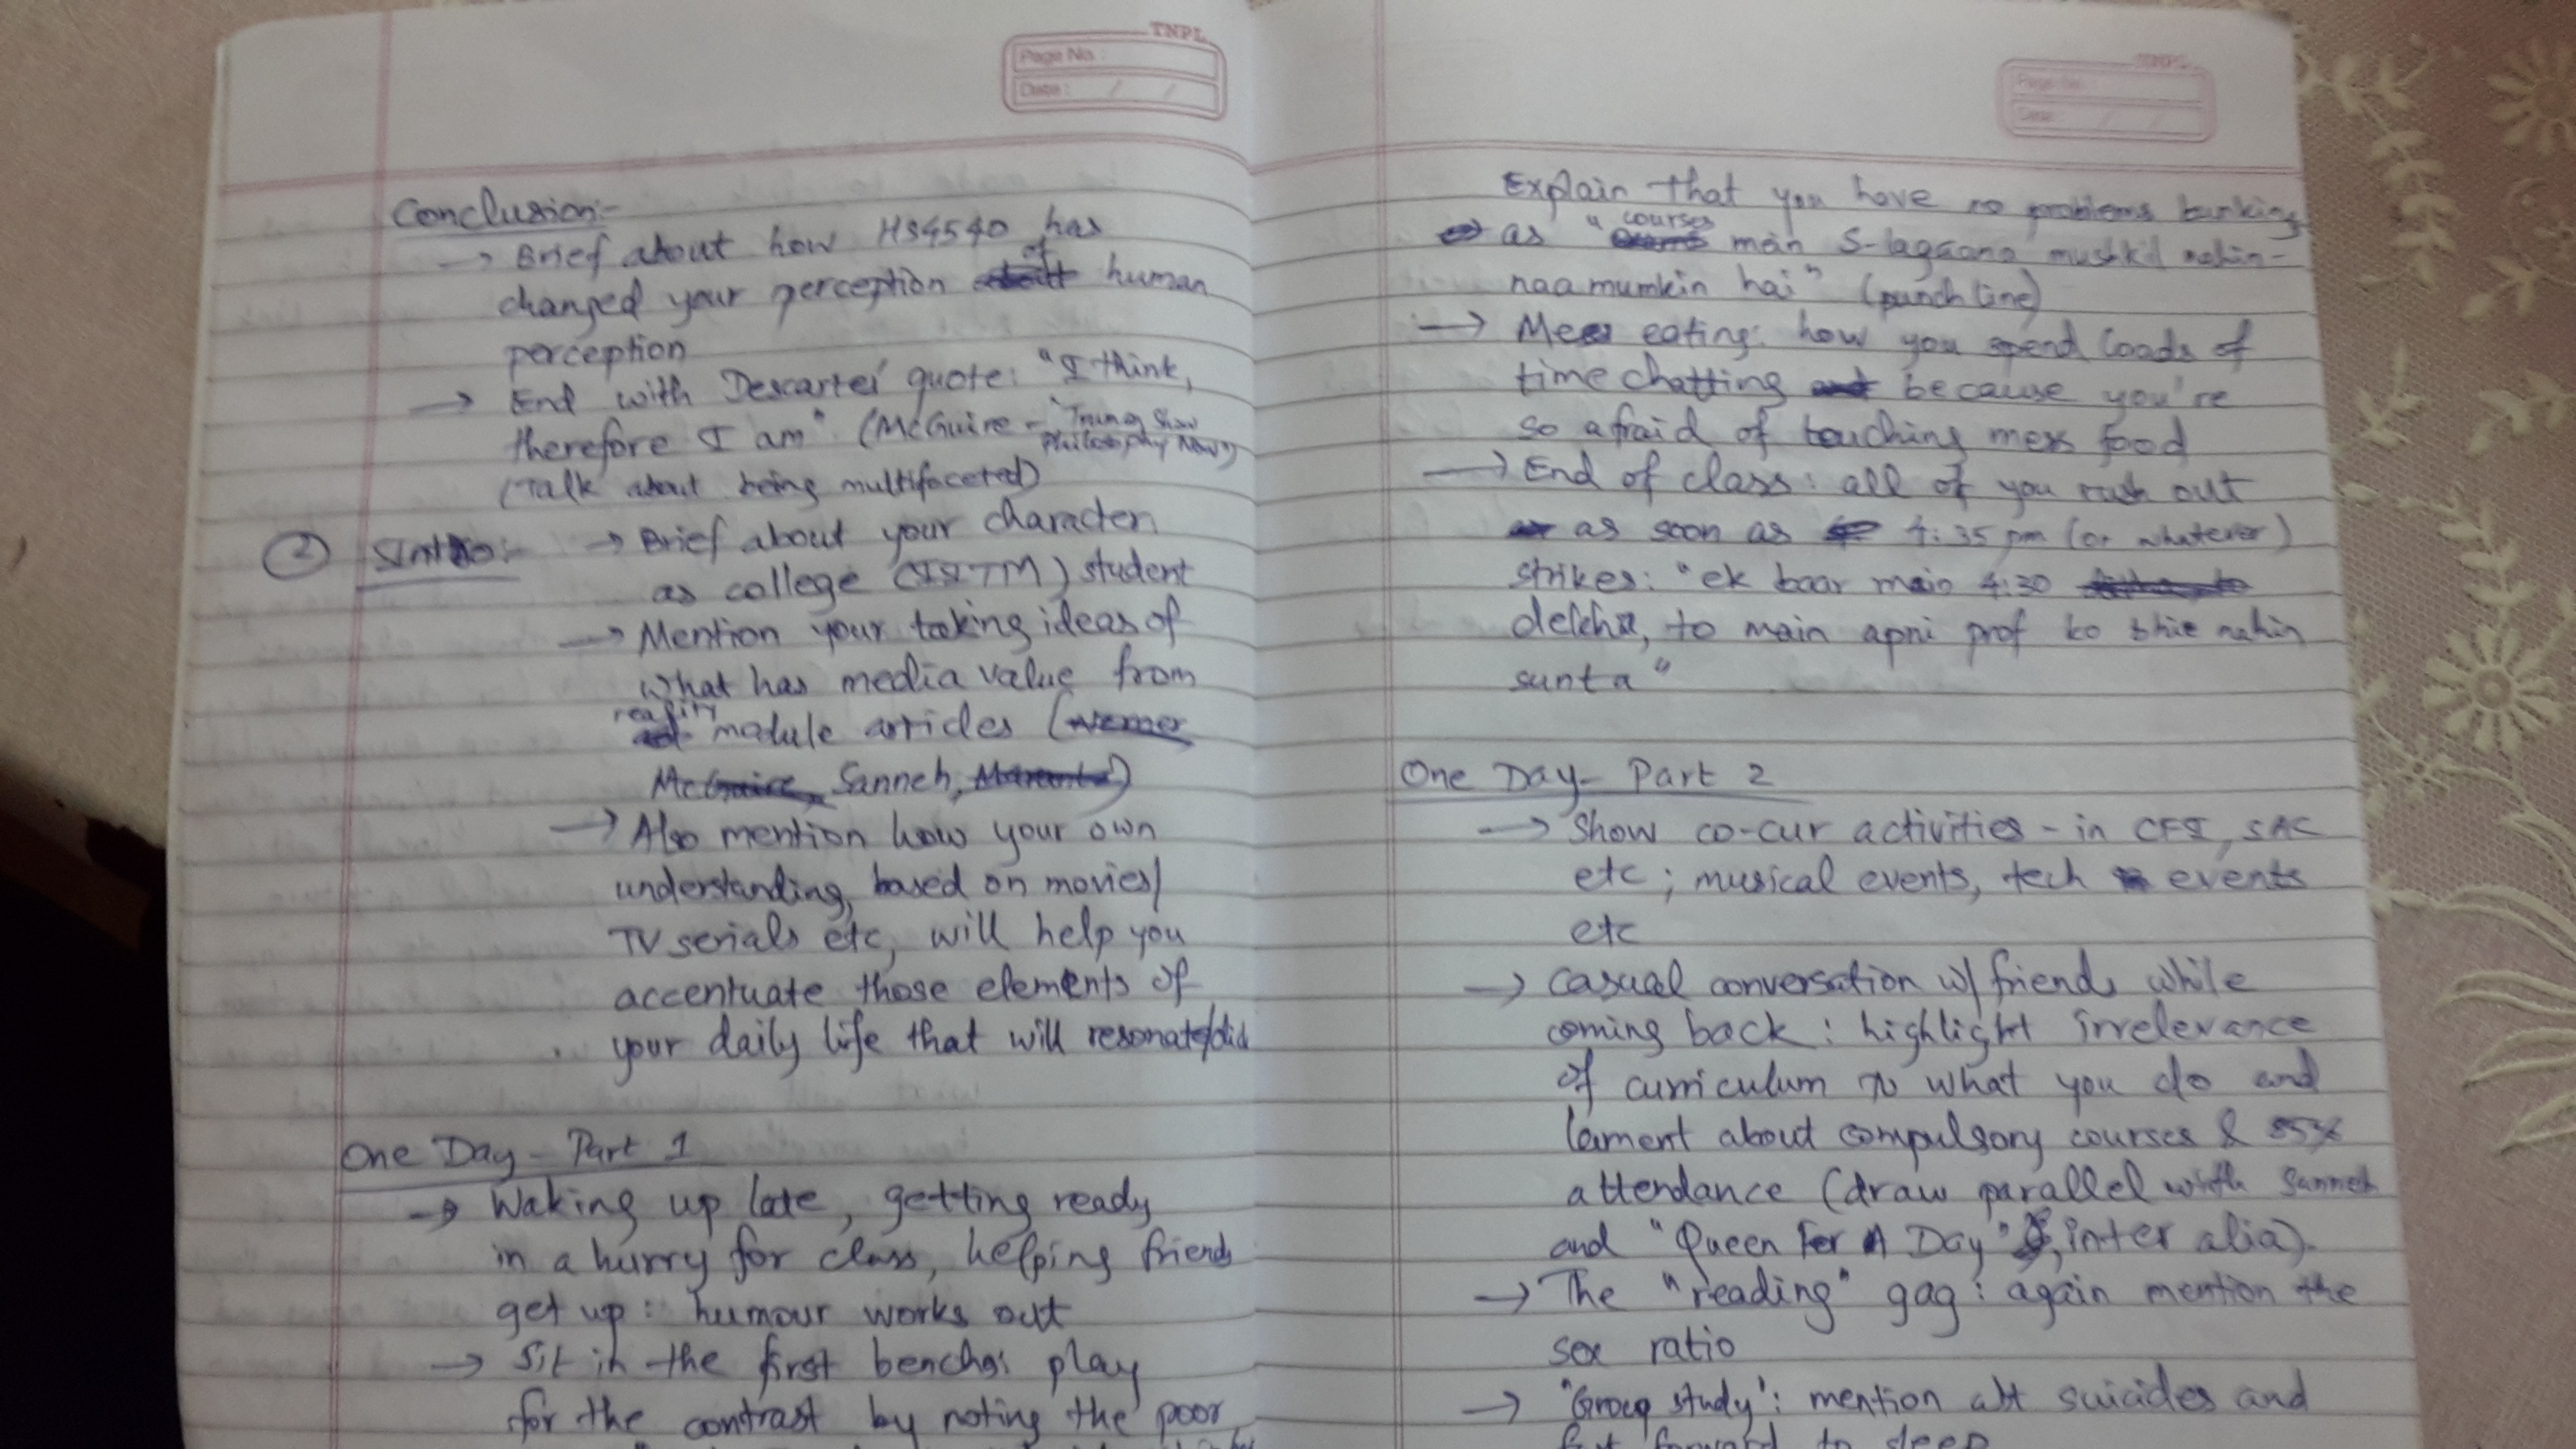 INPL
Page No.:
Date: / /
Conclusion:-
→ Brief about how HS4540 has
changed your perception of human
perception
→ End with Descartes' quote: "I think,
therefore I am". (McGuire - "Truman Show
Philosophy Now")
(Talk about being multifaceted)
② → Brief about your character
as college (IITM) student
→ Mention your taking ideas of
what has media value from
reality module articles (
Sanneh,
→ Also mention how your own
understanding, based on movies/
TV serials etc, will help you
accentuate those elements of
your daily life that will resonate/did
One Day - Part 1
→ Waking up late, getting ready
in a hurry for class, helping friends
get up : humour works out
→ Sit in the first benches, play
for the contrast by noting the poor
Explain that you have no problems bunking
as "courses main S-lagana mushkil nahin-
naamumkin hai" (punchline)
→ Mess eating: how you spend loads of
time chatting because you're
so afraid of touching mess food
→ End of class: all of you rush out
as soon as 4:35 pm (or whatever)
strikes: "ek baar main 4:30
dekha, to main apni prof ko bhie nahin
sunta"
One Day - Part 2
→ Show co-cur activities - in CFI, SAC
etc ; musical events, tech events
etc
→ Casual conversation w/ friends while
coming back : highlight irrelevance
of curriculum to what you do and
lament about compulsory courses & 85%
attendance (draw parallel with Sanneh
and "Queen For A Day", inter alia).
→ The "reading" gag : again mention the
sex ratio
→ "Group study": mention abt suicides and
fast forward to sleep